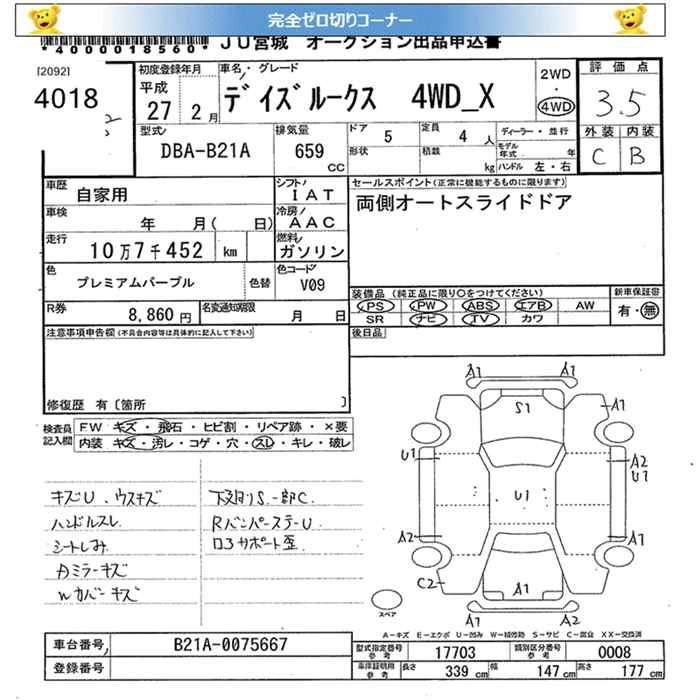 完全ゼロ切りコーナー
*4000018560* JU宮城 オークション出品申込書
[2092]
4018
初度登録年月 車名・グレード 2WD 評価点
平成 デイズルークス 4WD_X ・
27 2月 4WD 3.5
型式 排気量 ドア 5 定員 4人 ディーラー・並行 外装 内装
DBA-B21A 659 CC 形状 積載 kg モデル年式 年 C B
ハンドル 左・右
車歴 自家用 シフト IAT セールスポイント(正常に機能するものに限ります)
車検 年 月( 日) 冷房 AAC 両側オートスライドドア
走行 10万7千452 km 燃料 ガソリン
色 プレミアムパープル 色替 色コード V09
装備品(純正品に限り○をつけてください) 新車保証書
PS PW ABS エアB AW 有・無
R券 8,860円 名変通知期限 月 日 SR ナビ TV カワ
注意事項申告欄(不具合内容等は具体的に記入して下さい) 後日品
修復歴 有〔箇所 〕
検査員記入欄 FW キズ・飛石・ヒビ割・リペア跡・×要
内装 キズ・汚レ・コゲ・穴・スレ・キレ・破レ
A1 A1
S1 A1
U1 A2
U1 U1
A2 A2
C2 A1
A1 A2
スペア
キズU、ウスキズ 下回りS.一部C.
ハンドルスレ RバンパーステーU
シートしみ ロアサポート歪
Aミラーキズ
Wカバーキズ
A-キズ E-エクボ U-凹み W-補修跡 S-サビ C-腐食 XX-交換済
車台番号 B21A-0075667 型式指定番号参考 17703 類別区分番号参考 0008
登録番号 車庫証明用参考 長さ 339cm 幅 147cm 高さ 177cm